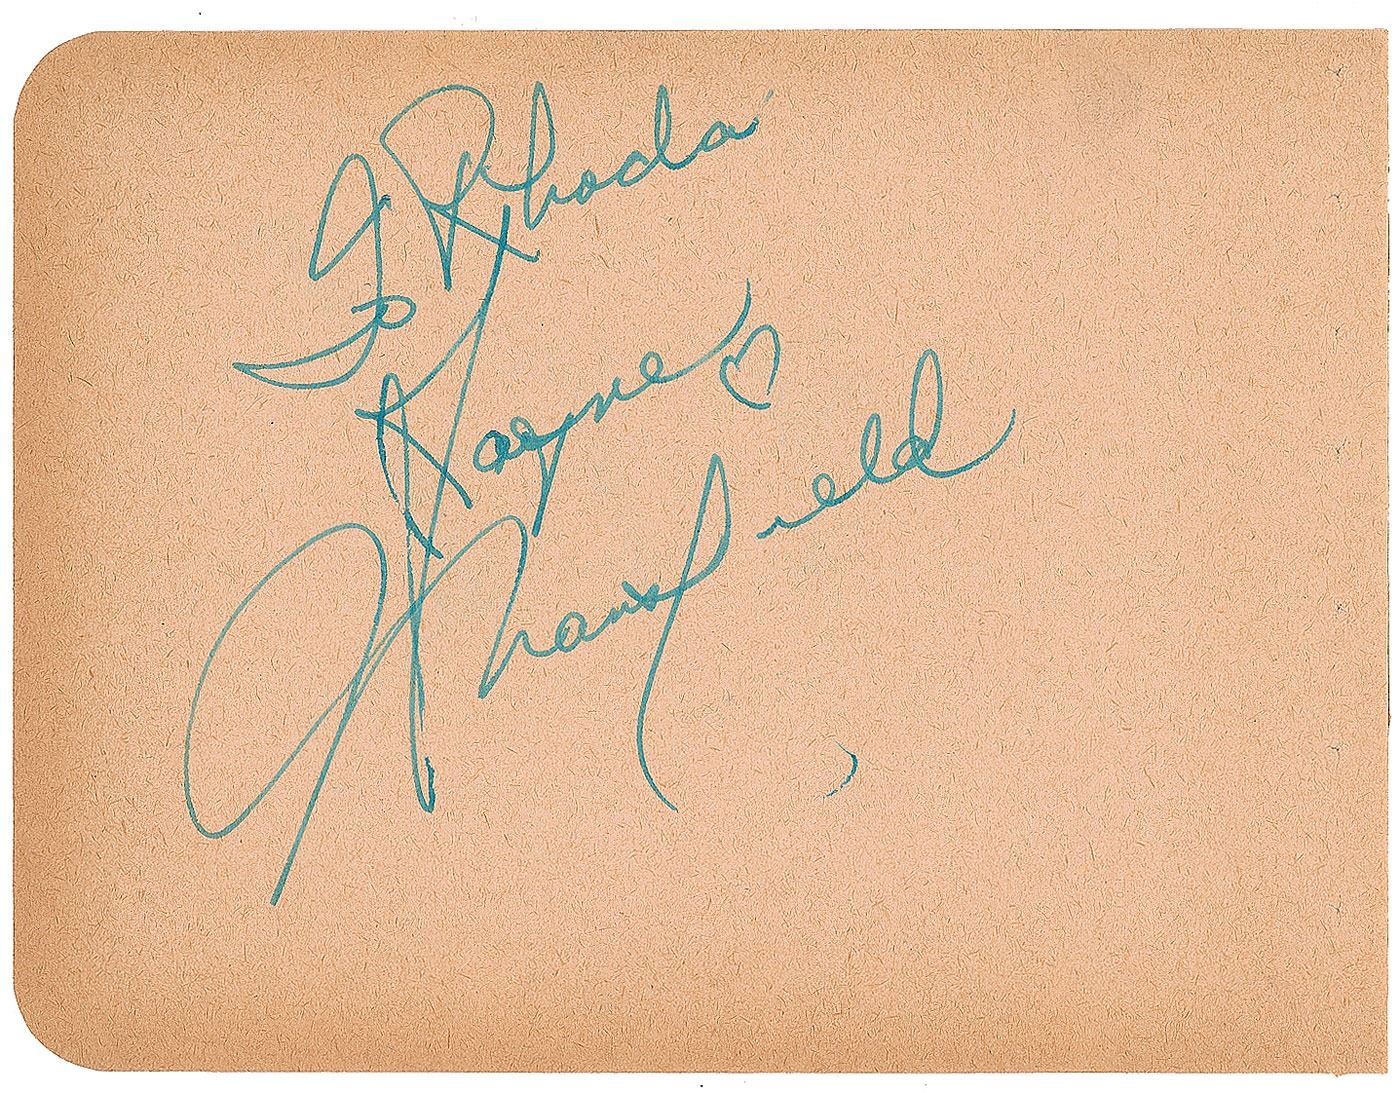 To Rhoda
Jayne
Mansfield